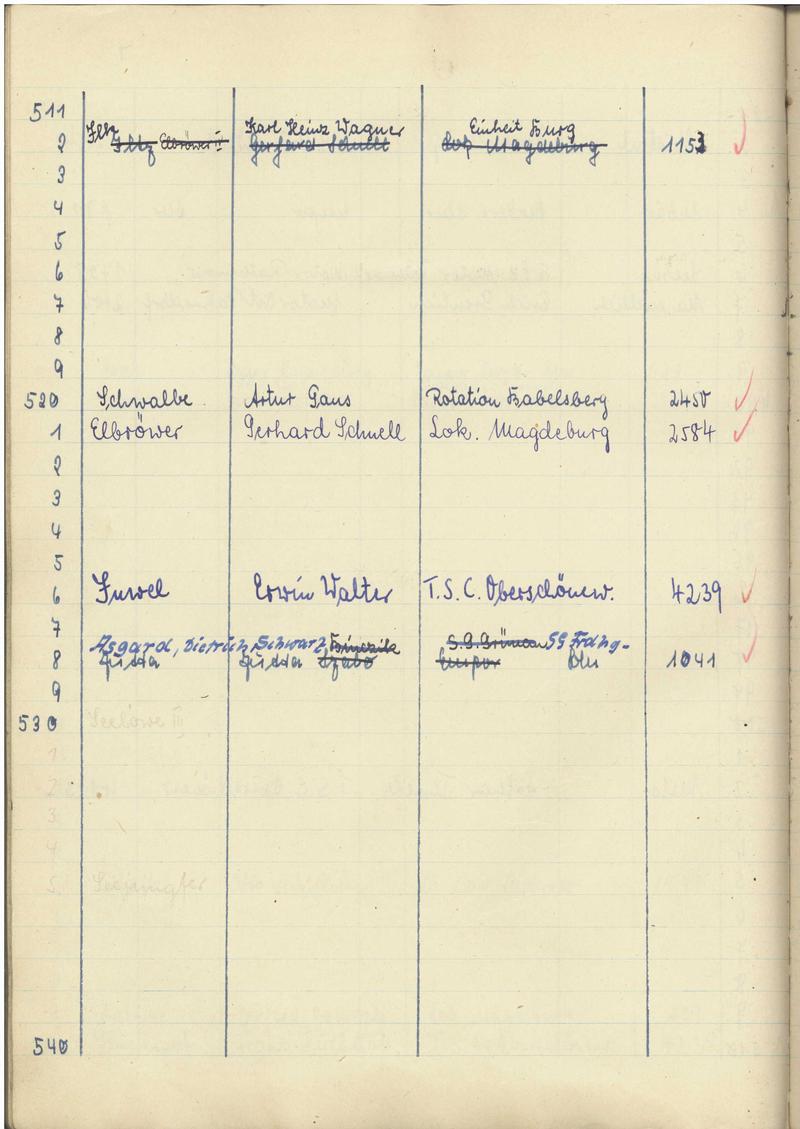 511
Ilk Iltz Elbröwer II Karl Heinz Wagner Einheit Burg
2 Gerhard Schnell Lok Magdeburg 1153
3
4
5
6
7
8
9
520 Schwalbe Artur Gans Rotation Babelsberg 2450
1 Elbröwer Gerhard Schnell Lok. Magdeburg 2584
2
3
4
5
6 Juwel Erwin Walter T.S.C. Oberschönew. 4239
7
Asgard, Dietrich Schwarz, S.G. Grünau SG Frdhg.
8 Szabo Empor Bln 1041
9
530
1
2
3
4
5 Seejungfer
540